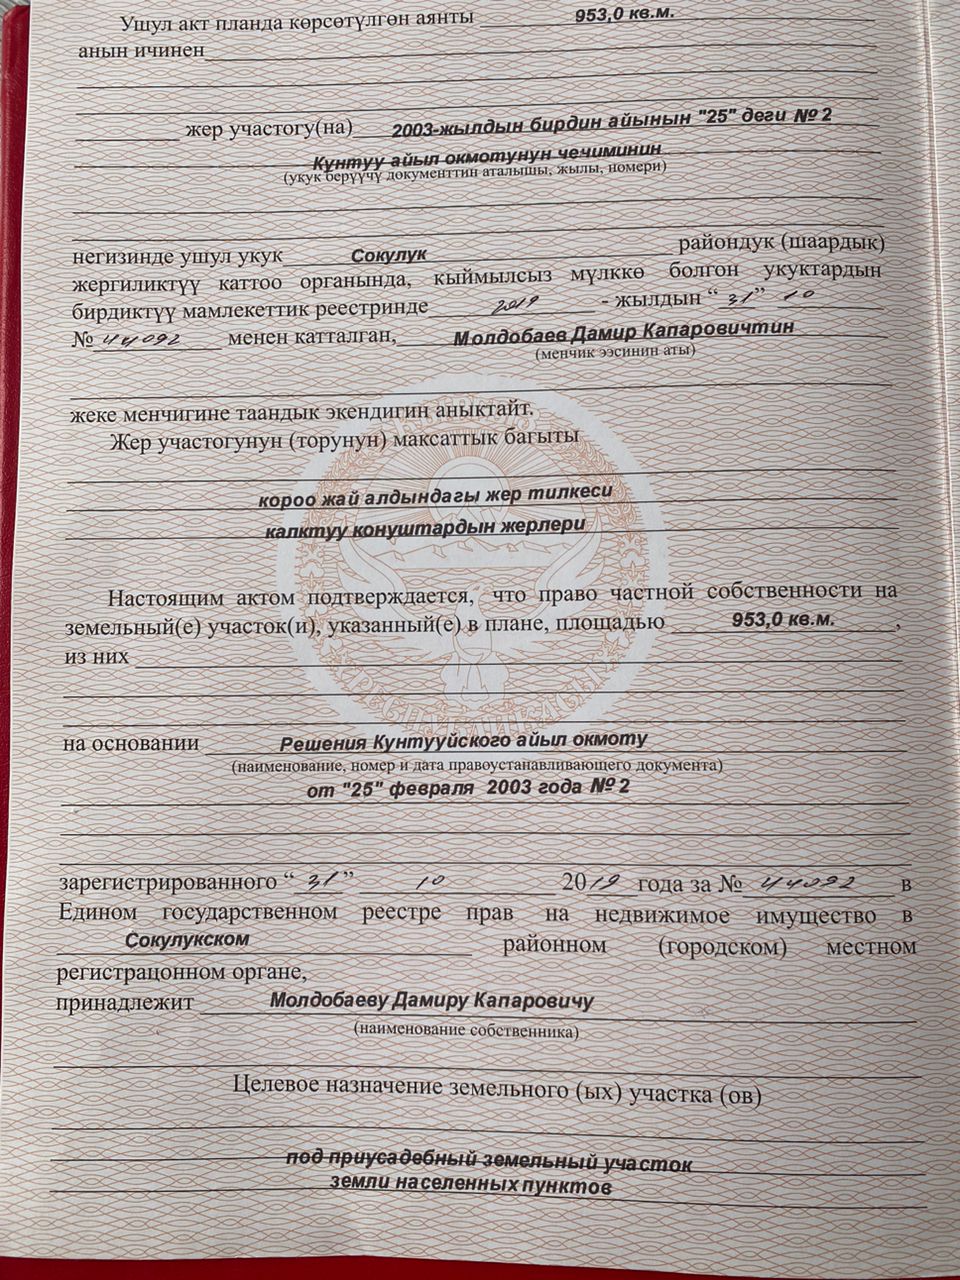 Ушул акт планда көрсөтүлгөн аянты 953,0 кв.м.
анын ичинен
жер участогу(на) 2003-жылдын бирдин айынын "25" деги №2
Күнтуу айыл окмотунун чечиминин
(укук берүүчү документтин аталышы, жылы, номери)
негизинде ушул укук Сокулук райондук (шаардык)
жергиликтүү каттоо органында, кыймылсыз мүлккө болгон укуктардын
бирдиктүү мамлекеттик реестринде 2019 - жылдын “31” 10
№ 44092 менен катталган, Молдобаев Дамир Капаровичтин
(менчик ээсинин аты)
жеке менчигине таандык экендигин аныктайт.
Жер участогунун (торунун) максаттык багыты
короо жай алдындагы жер тилкеси
калктуу конуштардын жерлери
Настоящим актом подтверждается, что право частной собственности на
земельный(е) участок(и), указанный(е) в плане, площадью 953,0 кв.м.,
из них
на основании Решения Кунтууйского айыл окмоту
(наименование, номер и дата правоустанавливающего документа)
от "25" февраля 2003 года №2
зарегистрированного “31” 10 2019 года за № 44092 в
Едином государственном реестре прав на недвижимое имущество в
Сокулукском районном (городском) местном
регистрацонном органе,
принадлежит Молдобаеву Дамиру Капаровичу
(наименование собственника)
Целевое назначение земельного (ых) участка (ов)
под приусадебный земельный участок
земли населенных пунктов